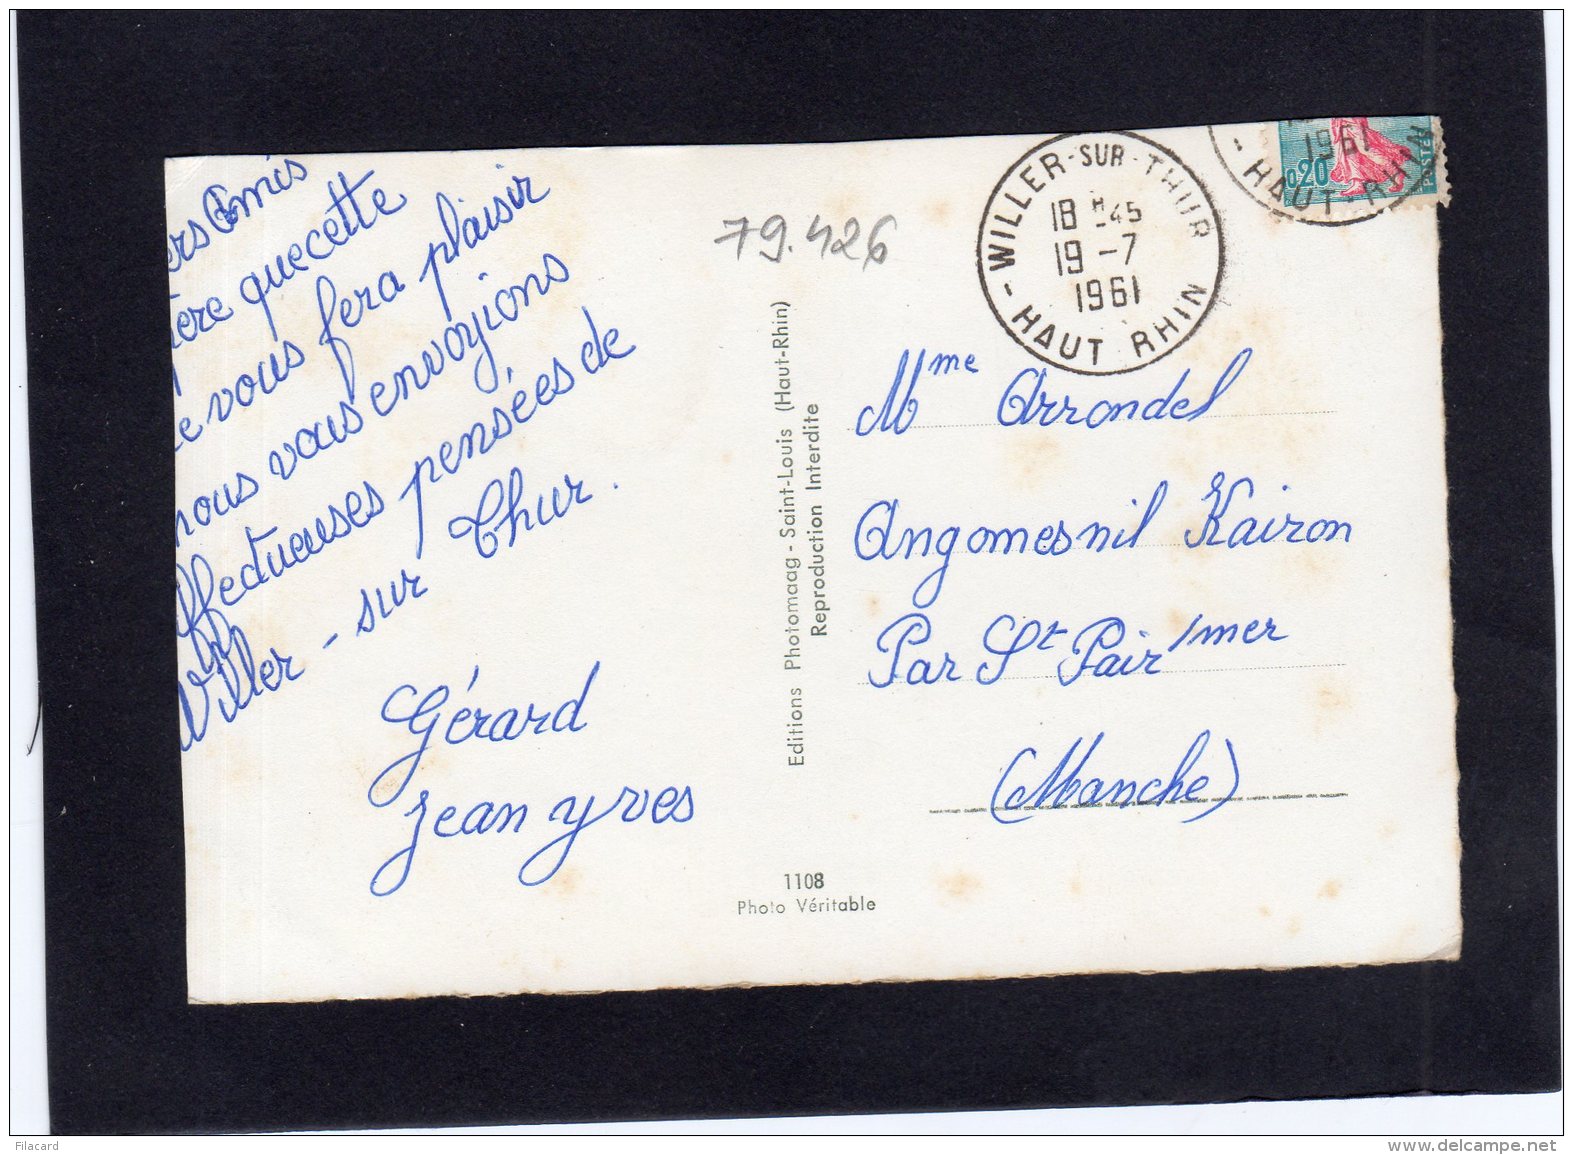 ers Amis
ère que cette
e vous fera plaisir
nous vous envoyions
ffectueuses pensées de
Willer - sur Thur.
Gérard
Jean yves
79.426
Editions Photomaag - Saint-Louis (Haut-Rhin)
Reproduction Interdite
1108
Photo Véritable
WILLER-SUR-THUR
18 H -45
19 -7
1961
- HAUT RHIN -
1961
- HAUT-RHIN
0,20
POSTES
Mme Arrondel
Angomesnil Kairon
Par St Pair/mer
(Manche)
Filacard
www.delcampe.net